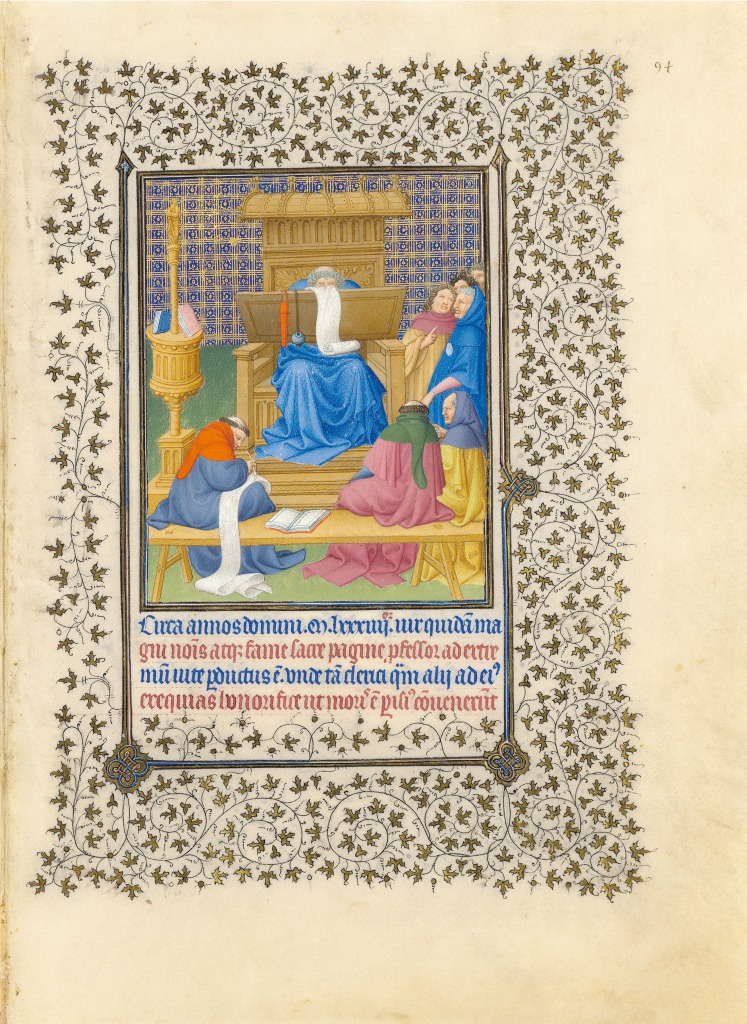 94
Circa annos domini .M. lxxxiiij. vir quidā ma
gni noīs atq; fame sacre pagine ꝓfessor ad extre
mū vite ꝑductus ē. vnde tā clerici q̄m alij ad ei᾽
exequias honorifice ut mor᾽ ē ꝑisi᾽ cōuenerūt